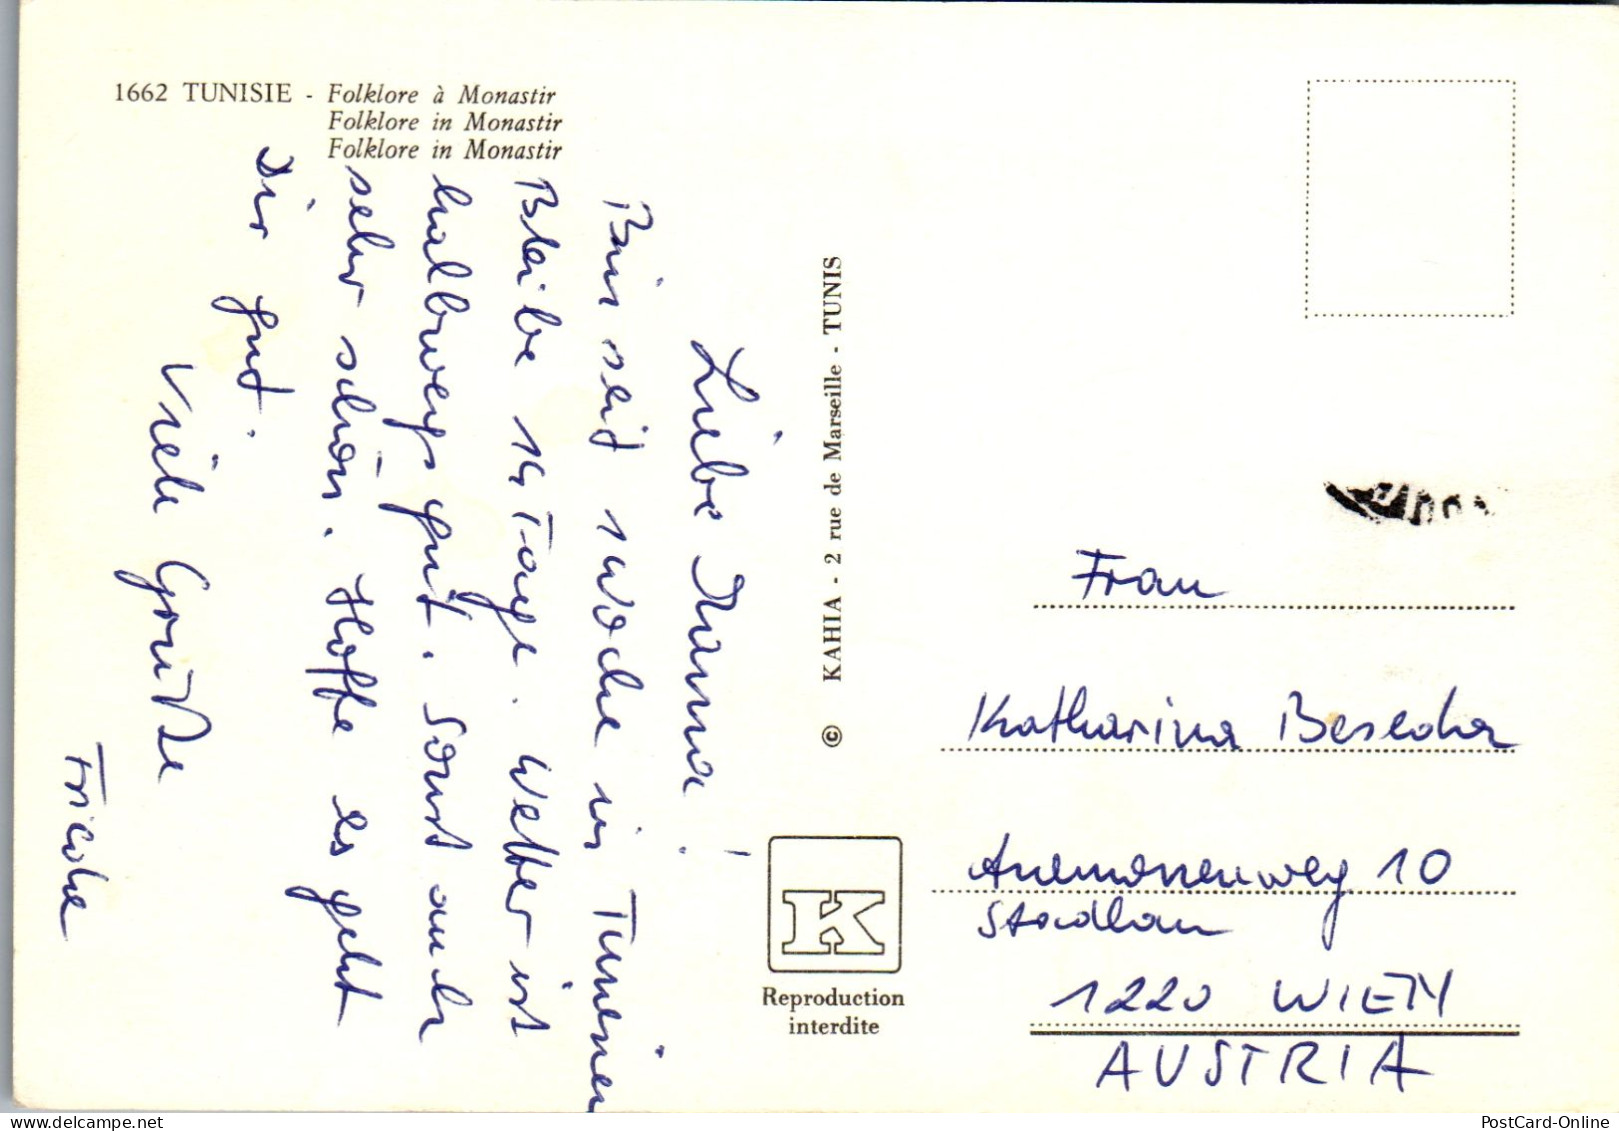 1662 TUNISIE - Folklore à Monastir
Folklore in Monastir
Folklore in Monastir
Liebe Mimma!
Bin seit 1 Woche in Tunesien
Bleibe 14 Tage. Wetter ist
halbwegs gut. Sonst auch
sehr schön. Hoffe es geht
Dir gut.
Viele Grüße
Friede
© KAHIA - 2 rue de Marseille - TUNIS
K
Reproduction
interdite
Frau
Katharina Beseda
Anemonenweg 10
Stadlau
1220 WIEN
AUSTRIA
PostCard-Online